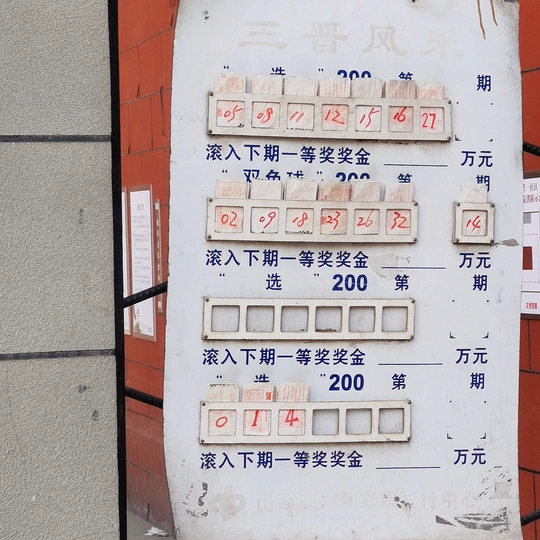 三晋风采
“ 选 ” 200 第 期
05 09 11 12 15 16 27
滚入下期一等奖奖金 万元
“双色球” 200 第 期
02 09 18 23 26 32 14
滚入下期一等奖奖金 万元
“ 选 ” 200 第 期
滚入下期一等奖奖金 万元
“ 选 ” 200 第 期
0 1 4
滚入下期一等奖奖金 万元